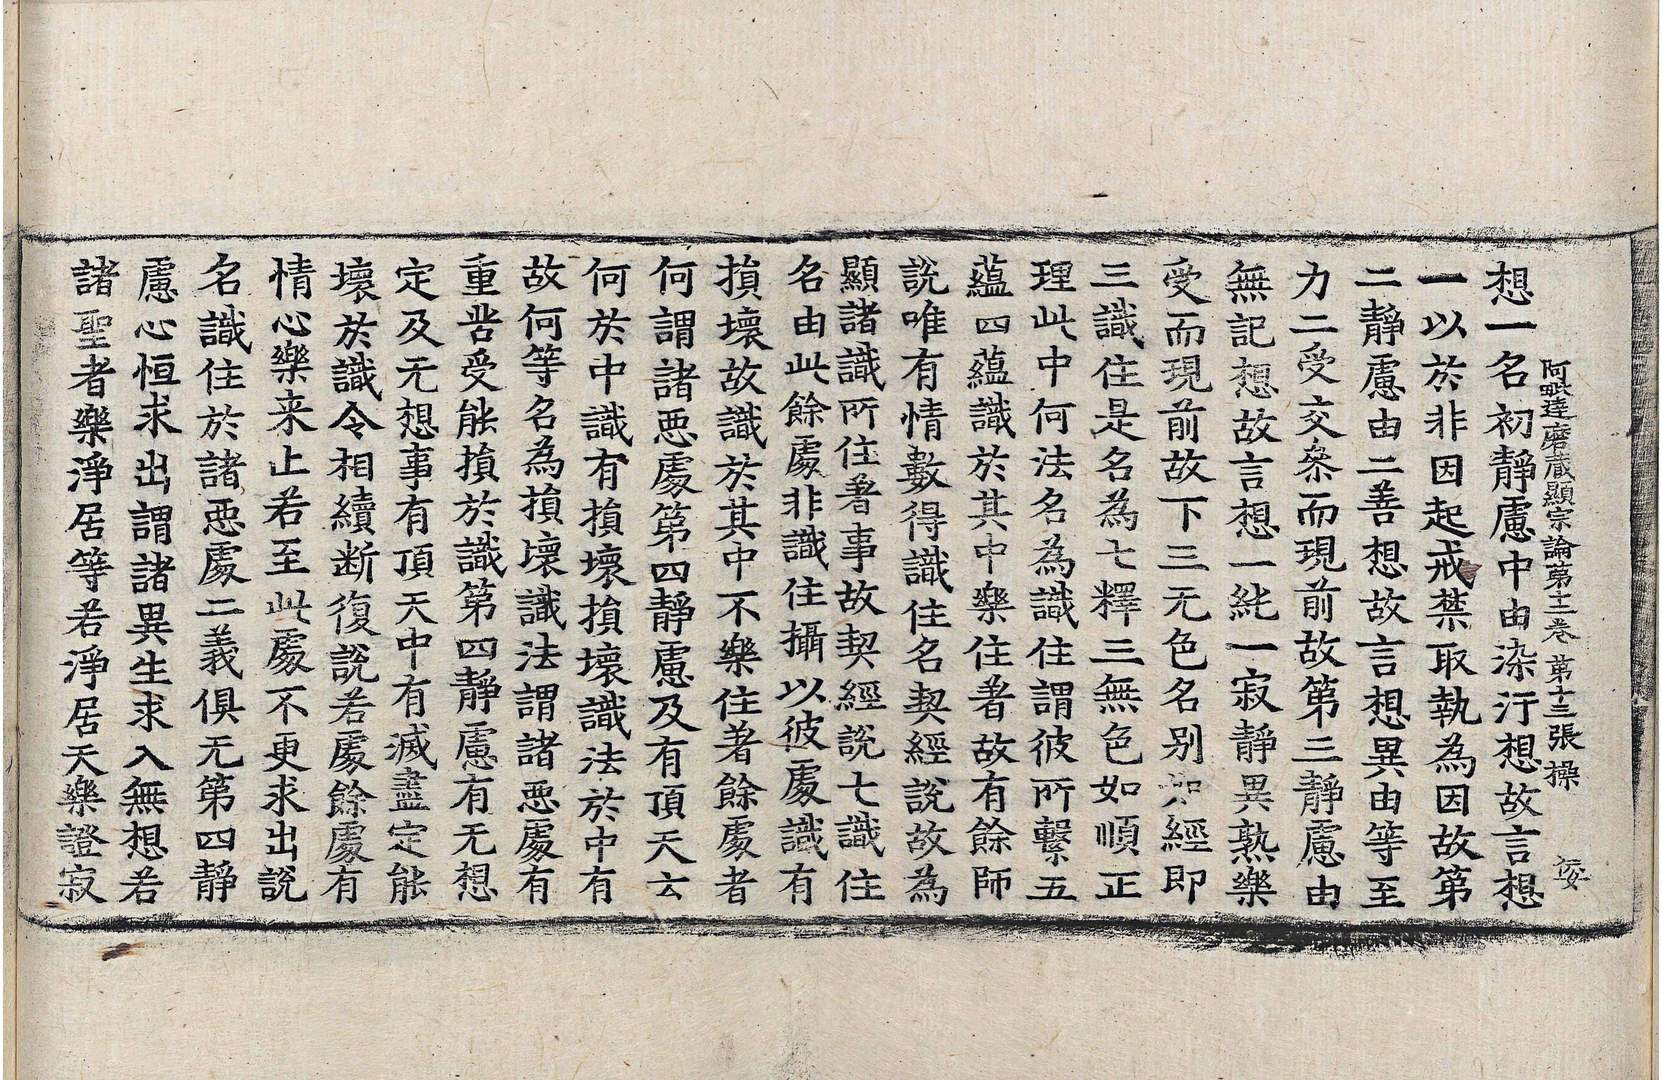 阿毗達磨蔵顯宗論第十二卷 第十三張 操
想一名初靜慮中由染汙想故言想
一以於非因起戒禁取執為因故第
二靜慮由二善想故言想異由等至
力二受交叅而現前故第三靜慮由
無記想故言想一純一寂靜異熟樂
受而現前故下三无色名別如經即
三識住是名為七釋三無色如順正
理此中何法名為識住謂彼所繫五
蘊四蘊識於其中樂住著故有餘師
說唯有情數得識住名契經說故為
顯諸識所住著事故契經說七識住
名由此餘處非識住攝以彼處識有
損壞故識於其中不樂住著餘處者
何謂諸惡處第四靜慮及有頂天云
何於中識有損壞損壞識法於中有
故何等名為損壞識法謂諸惡處有
重苦受能損於識第四靜慮有无想
定及无想事有頂天中有滅盡定能
壞於識令相續断復說若處餘處有
情心樂来止若至此處不更求出說
名識住於諸惡處二義俱无第四靜
慮心恒求出謂諸異生求入無想若
諸聖者樂淨居等若淨居天樂證寂